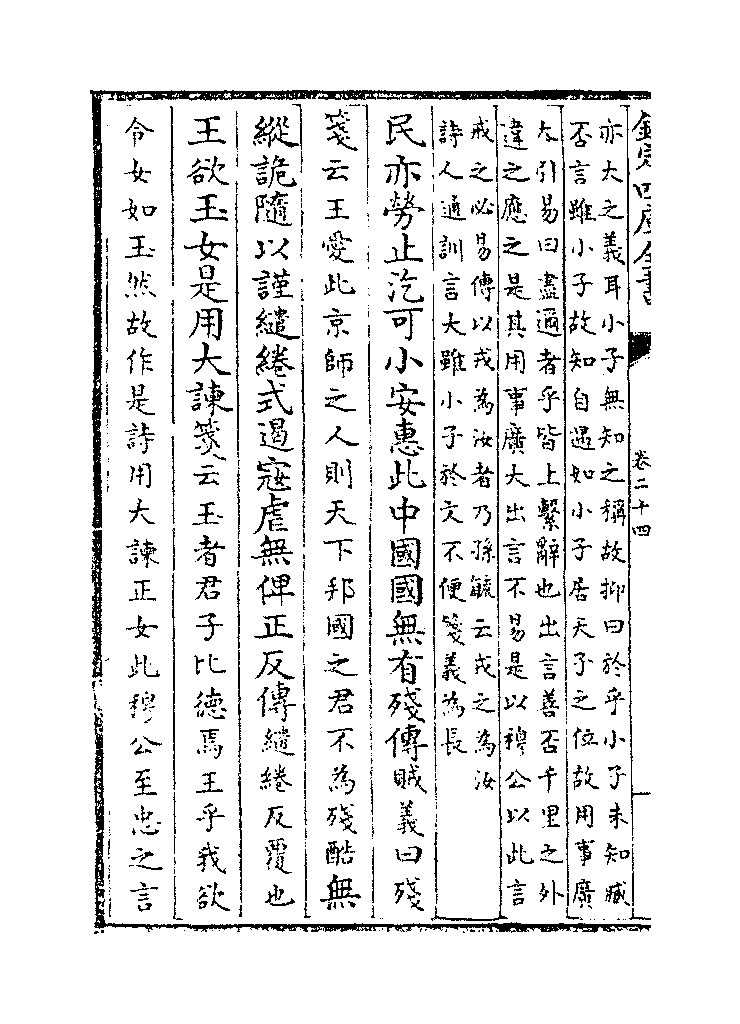 欽定四庫全書
卷二十四
亦大之義耳小子無知之稱故抑曰於乎小子未知臧
否言雖小子故知自遇如小子居天子之位故用事廣
大引易曰盡過者乎皆上繫辭也出言善否千里之外
違之應之是其用事廣大出言不易是以穆公以此言
戒之必易傳以戎為汝者乃孫毓云戎之為汝
詩人通訓言大雖小子於文不便箋義為長
民亦勞止汔可小安惠此中國國無有殘傳賊義曰殘
箋云王愛此京師之人則天下邦國之君不為殘酷無
縱詭隨以謹繾綣式遏寇虐無俾正反傳繾綣反覆也
王欲玉女是用大諫箋云玉者君子比德焉王乎我欲
令女如玉然故作是詩用大諫正女此穆公至忠之言